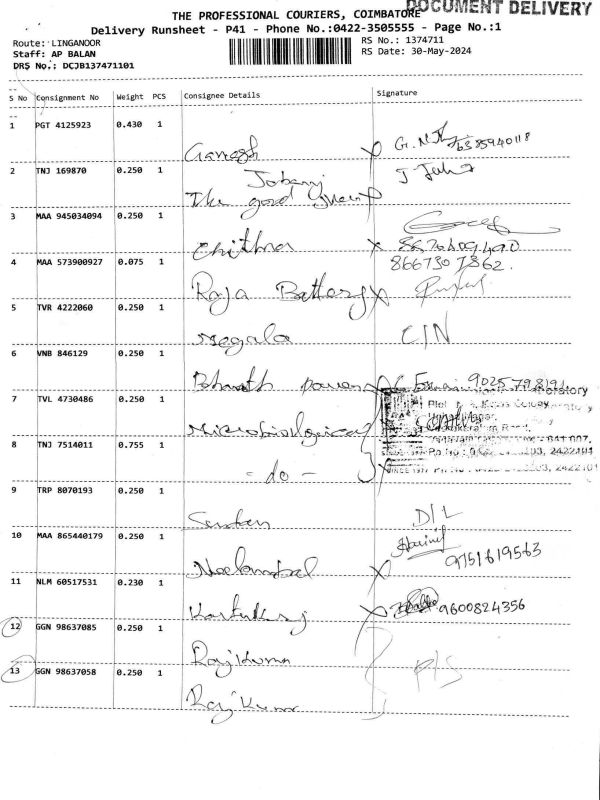 THE PROFESSIONAL COURIERS, COIMBATORE
DOCUMENT DELIVERY
Delivery Runsheet - P41 - Phone No.:0422-3505555 - Page No.:1
Route: LINGANOOR
RS No.: 1374711
Staff: AP BALAN
RS Date: 30-May-2024
DRS No.: DCJB137471101
S No Consignment No Weight PCS Consignee Details Signature
1 PGT 4125923 0.430 1
Ganesh G.N 6385940118
2 TNJ 169870 0.250 1
The good
3 MAA 945034094 0.250 1
Chithra
4 MAA 573900927 0.075 1
8667307862.
Raja Battery
5 TVR 4222060 0.250 1
Megala
6 VNB 846129 0.250 1
Bharath power 9025798191
7 TVL 4730486 0.250 1
Microbiological
8 TNJ 7514011 0.755 1
- do -
9 TRP 8070193 0.250 1
D/L
10 MAA 865440179 0.250 1
9751619563
11 NLM 60517531 0.230 1
9600824356
12 GGN 98637085 0.250 1
Rajkumar
13 GGN 98637058 0.250 1
Rajkumar